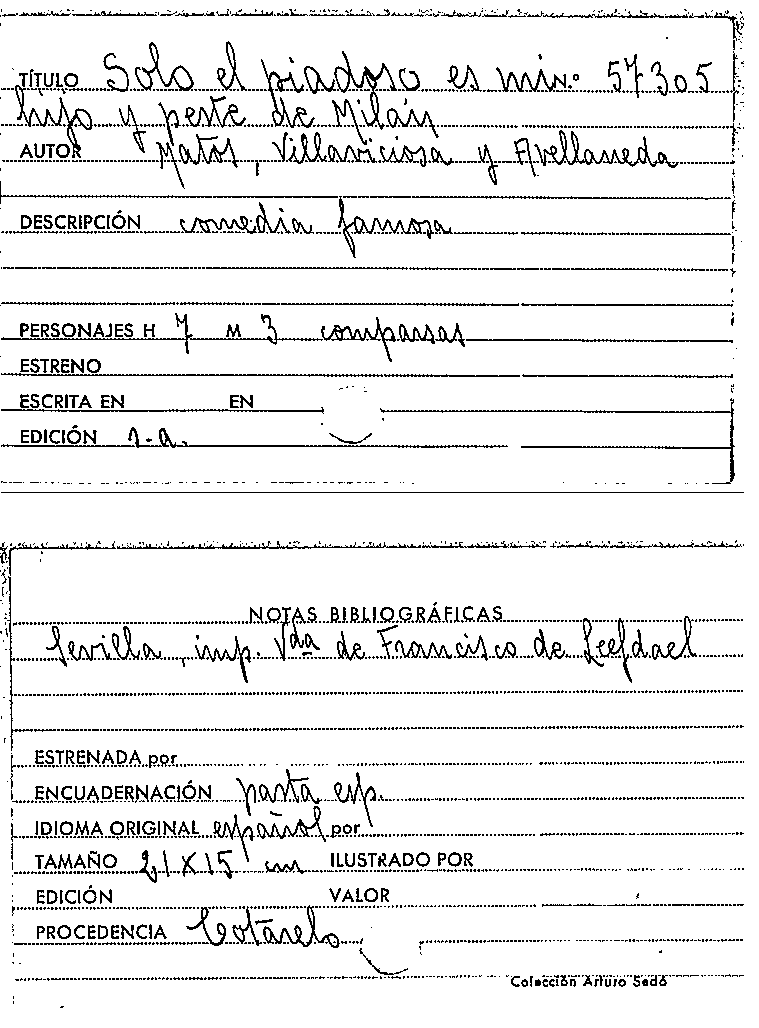 TÍTULO Solo el piadoso es mi N.º 57305
hijo y peste de Milán
AUTOR Matos, Villaviciosa y Avellaneda
DESCRIPCIÓN comedia famosa
PERSONAJES H 7 M 3 comparsas
ESTRENO
ESCRITA EN EN
EDICIÓN s.a.
NOTAS BIBLIOGRÁFICAS
Sevilla, imp. Vda de Francisco de Leefdael
ESTRENADA por
ENCUADERNACIÓN pasta esp.
IDIOMA ORIGINAL español por
TAMAÑO 21 X 15 cm ILUSTRADO POR
EDICIÓN VALOR
PROCEDENCIA Cotarelo
Colección Arturo Sedó